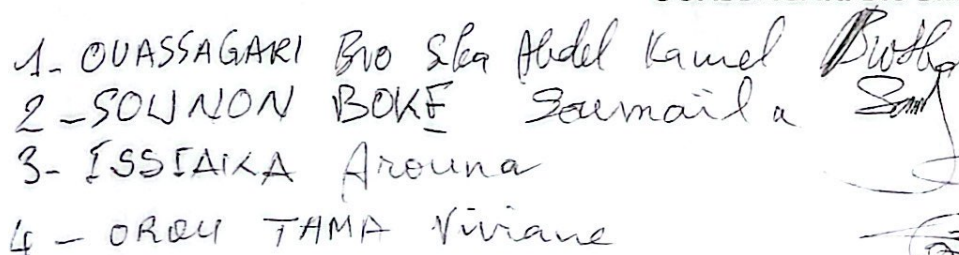 1- OUASSAGARI Bio Ska Abdel Kamel
2 - SOUNON BOKE Soumaïla
3- ISSIAKA Arouna
4 - OROU TAMA Viviane